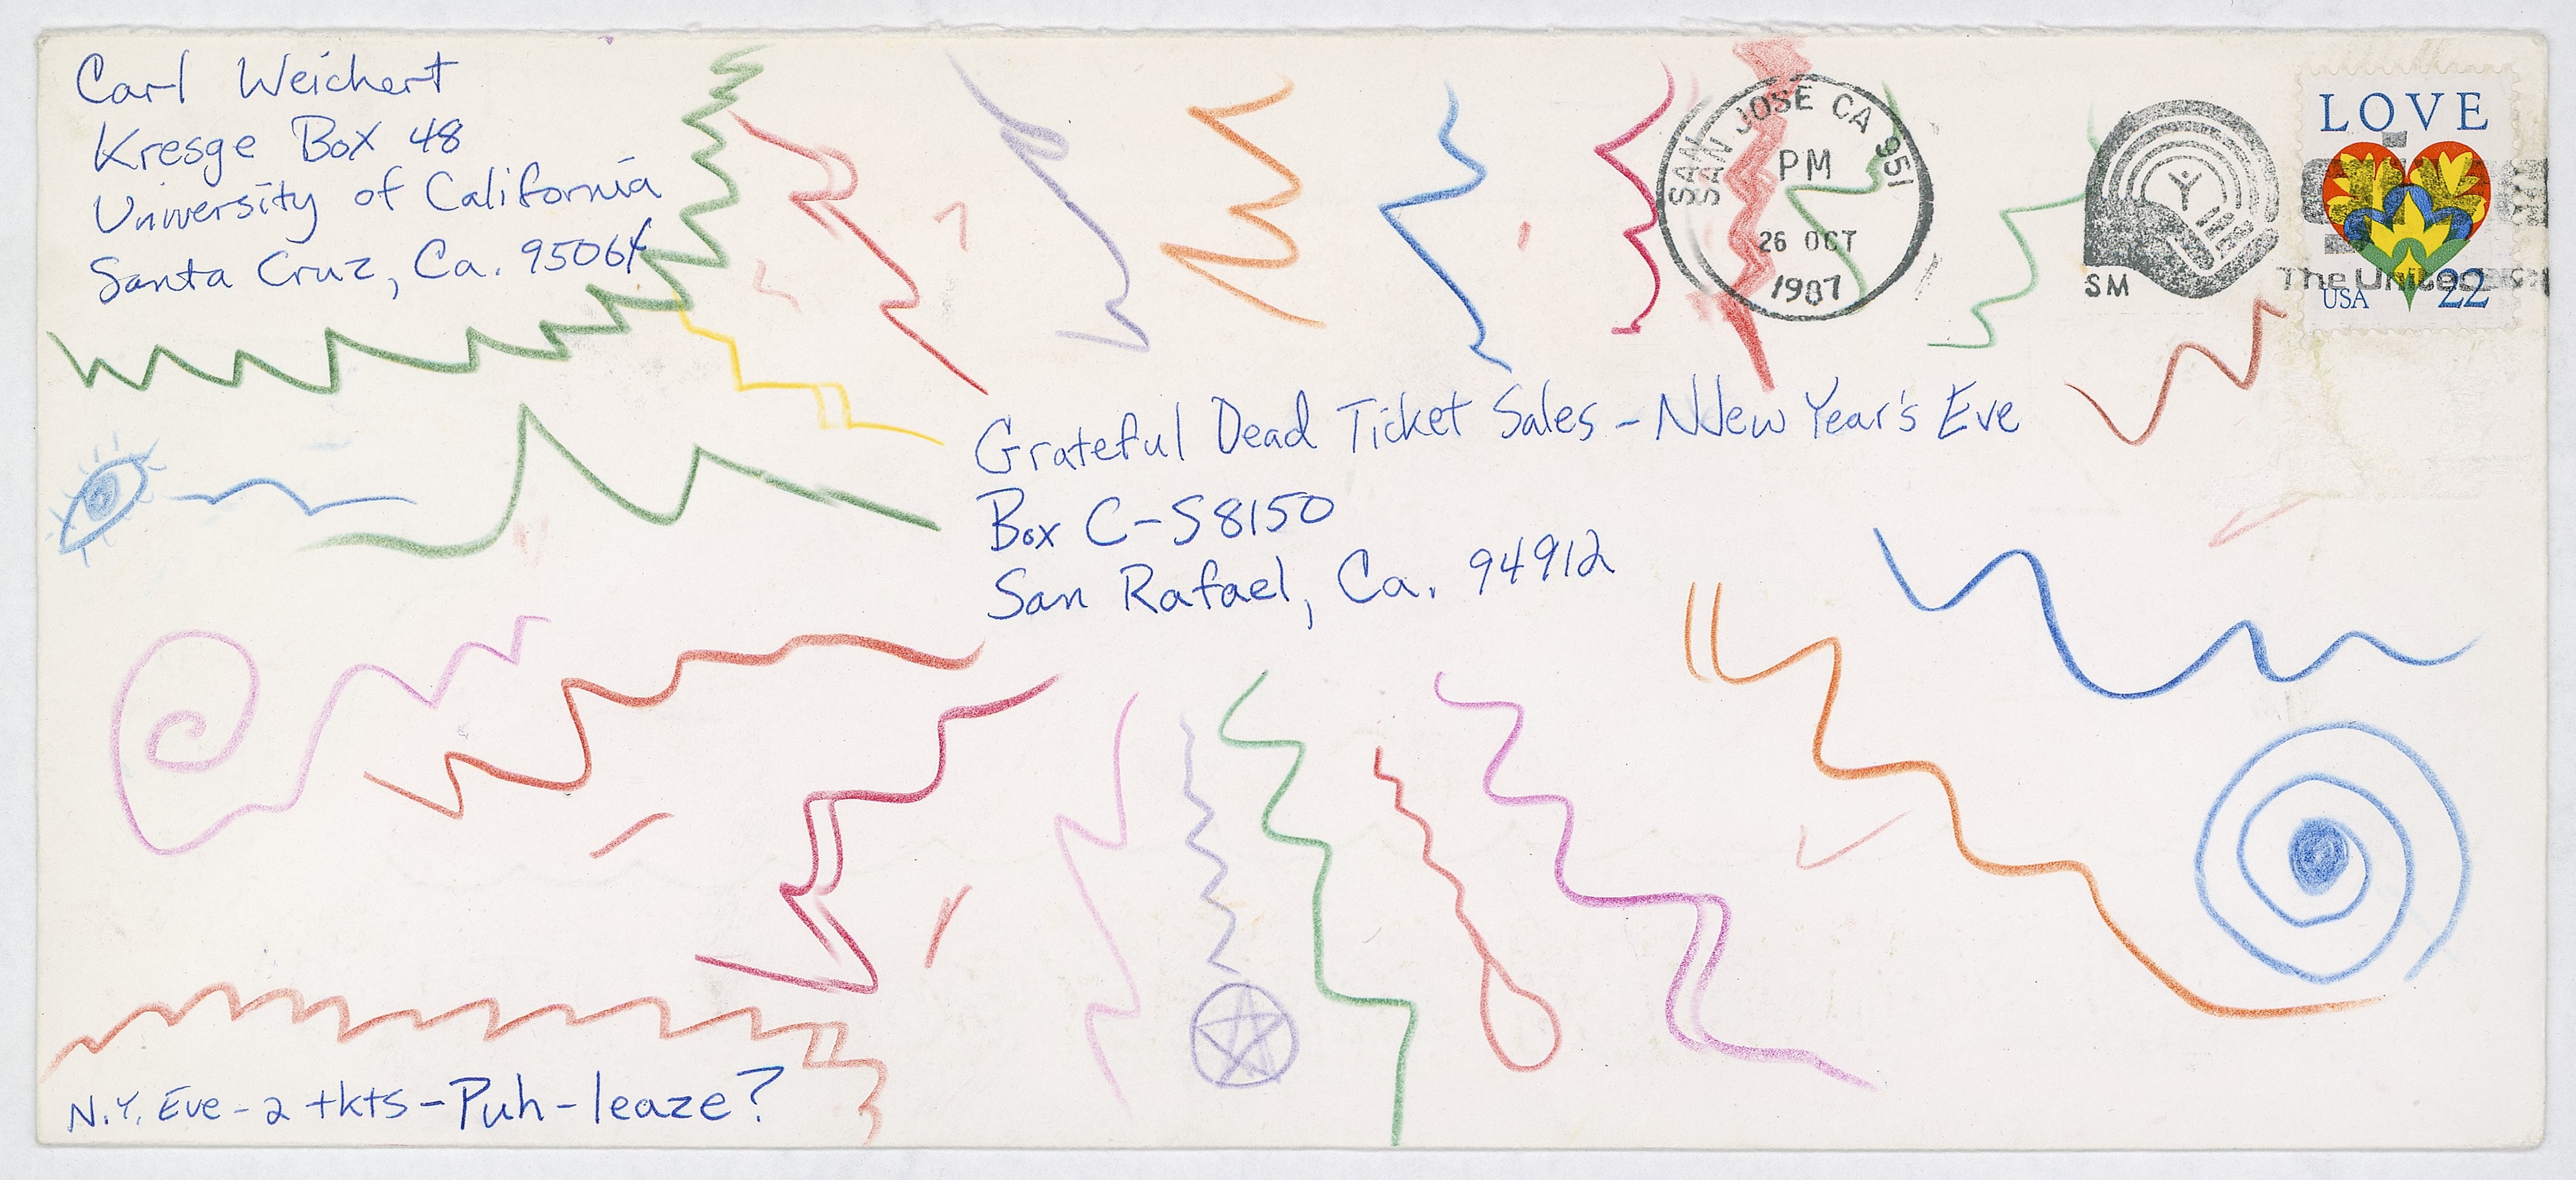 Carl Weichert
Kresge Box 48
University of California
Santa Cruz, Ca. 95064
SAN JOSE CA 951
PM
26 OCT
1987
SM
The United
LOVE
USA 22
Grateful Dead Ticket Sales - NNew Year's Eve
Box C-S8150
San Rafael, Ca. 94912
N.Y. Eve - 2 tkts - Puh-leaze?